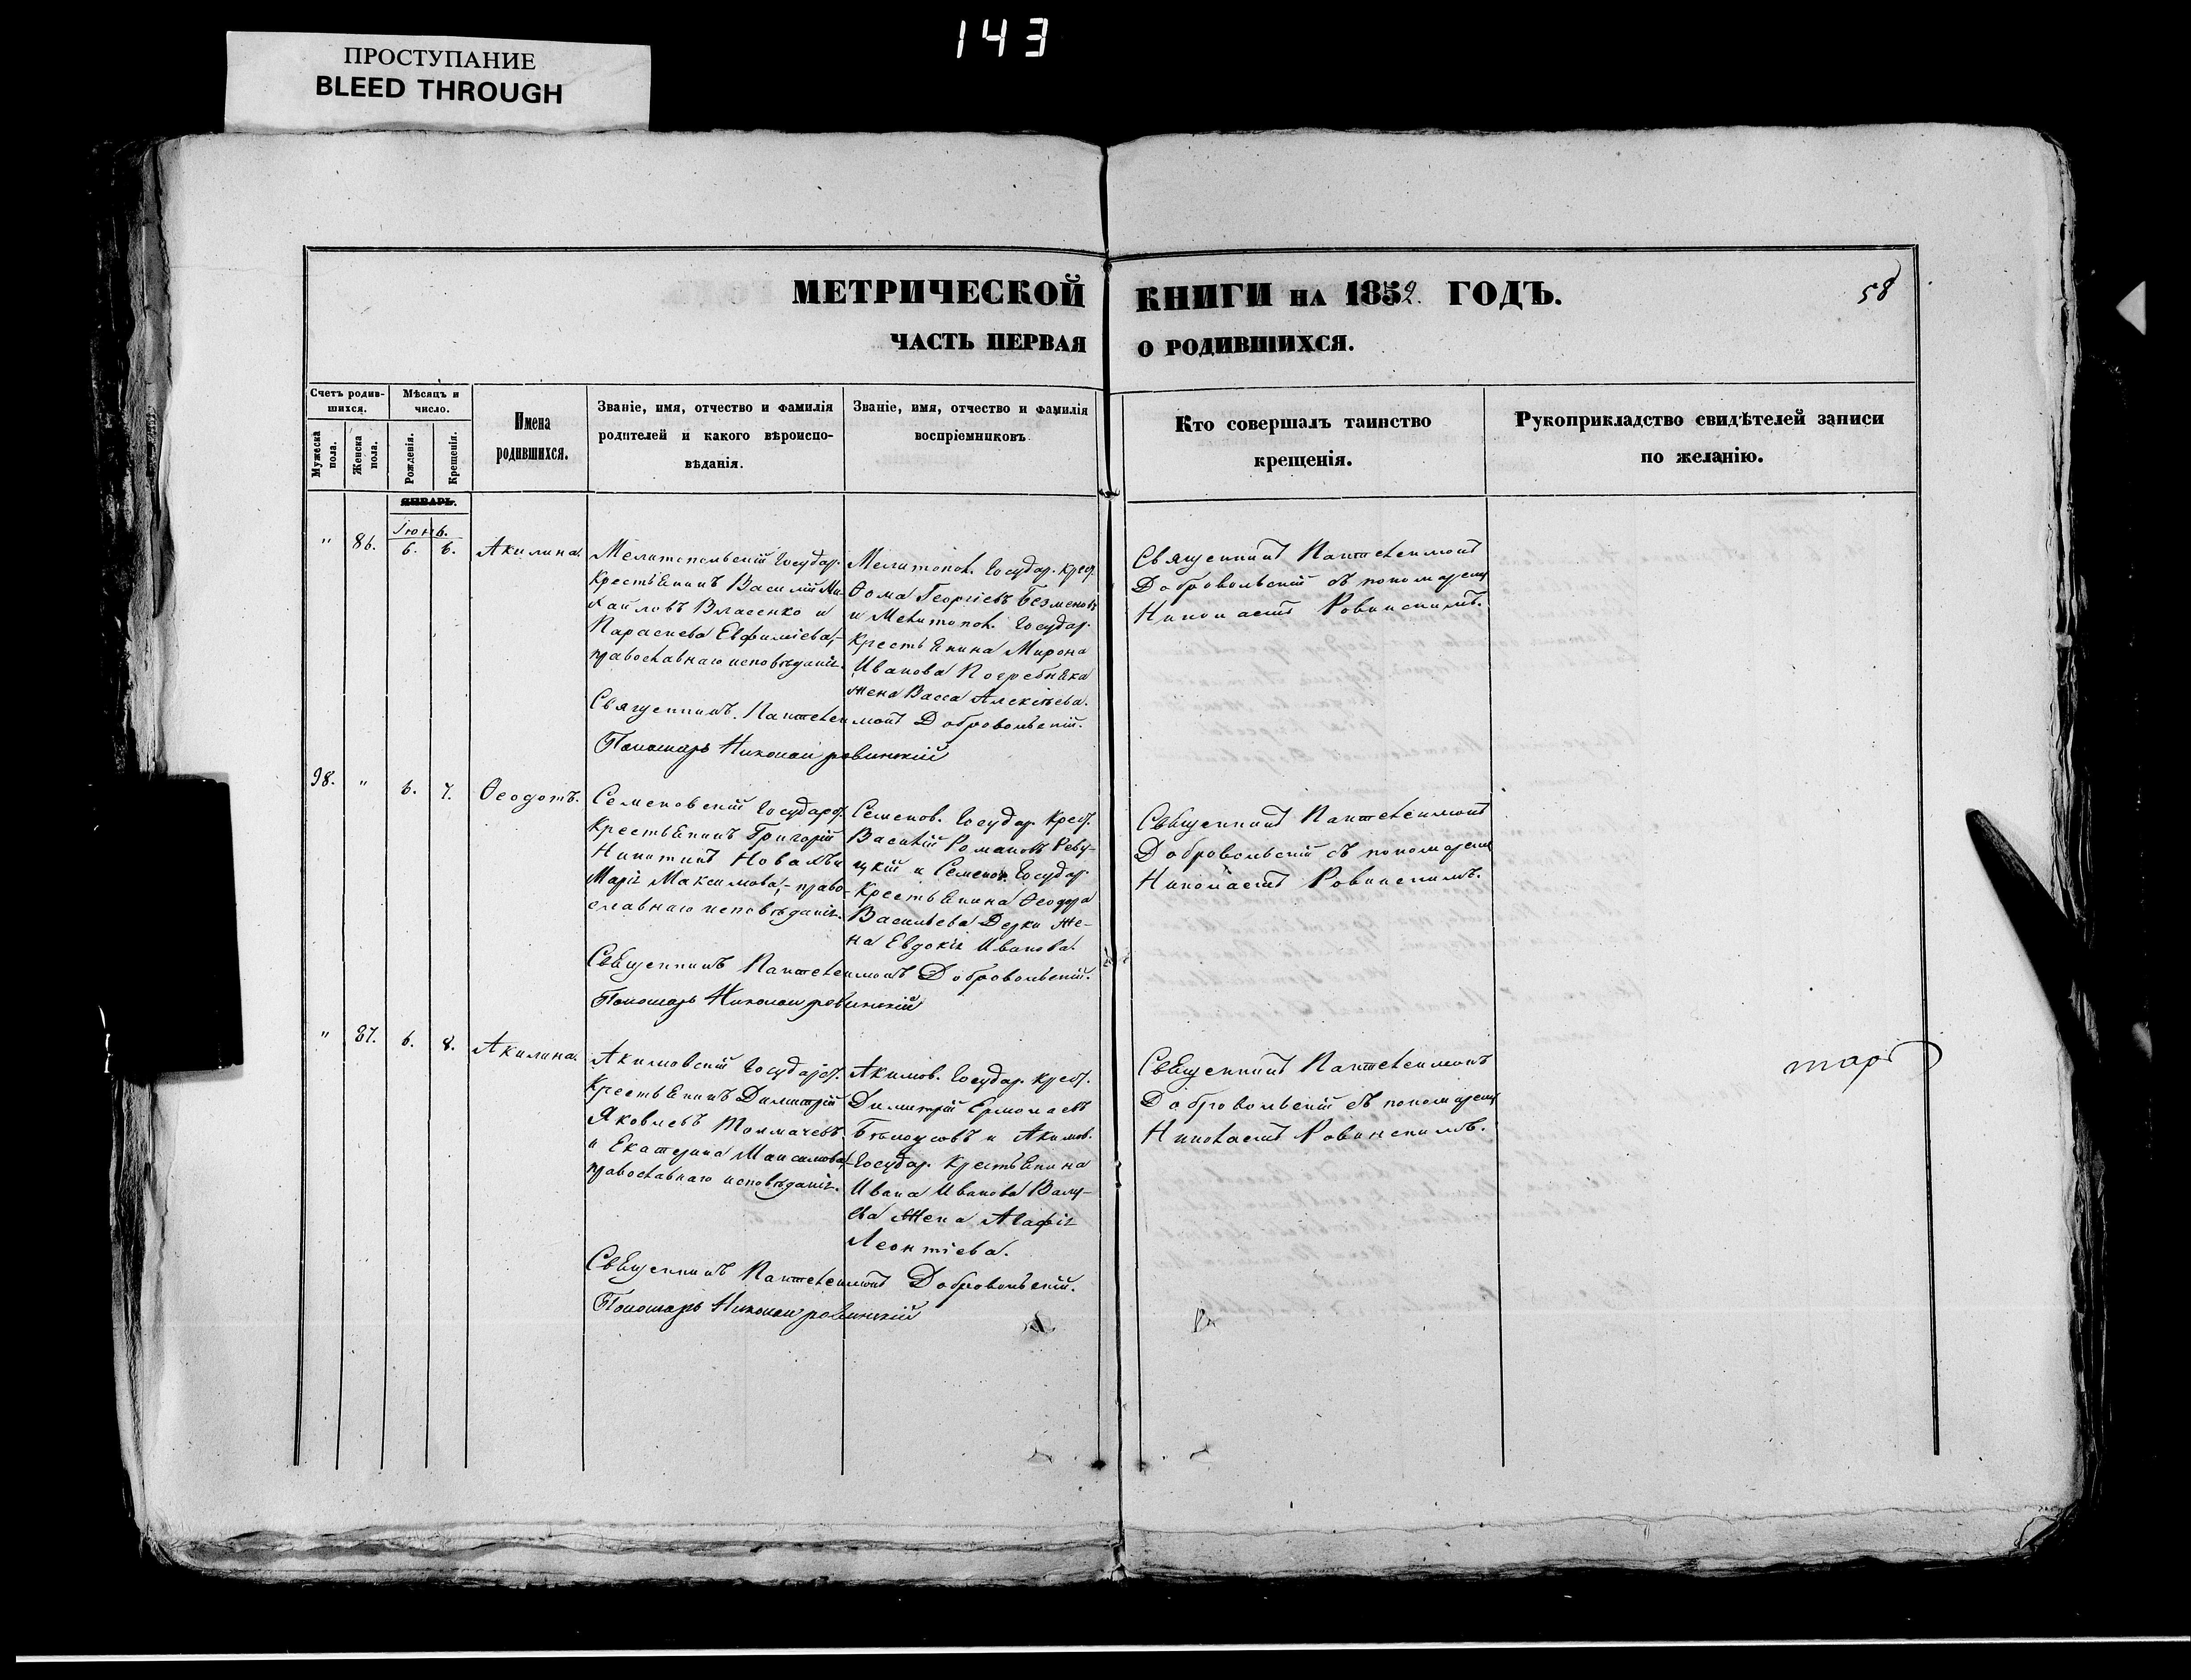 143
ПРОСТУПАНИЕ
BLEED THROUGH
МЕТРИЧЕСКОЙ КНИГИ НА 1852. ГОДЪ.
58
ЧАСТЬ ПЕРВАЯ О РОДИВШИХСЯ.
Счетъ родив-
шихся.
Мужеска пола.
Женска пола.
Мѣсяцъ и
число.
Рожденія.
Крещенія.
Имена
родившихся.
Званіе, имя, отчество и фамилія
родителей и какого вѣроиспо-
вѣданія.
Званіе, имя, отчество и фамилія
воспріемниковъ.
Кто совершалъ таинство
крещенія.
Рукоприкладство свидѣтелей записи
по желанію.
ЯНВАРЬ.
Іюнь.
" 86. 6. 6. Акилина.
Мелитопольскій Государ.
Крестьянинъ Василій Ми-
хайловъ Власенко и
Параскева Евфиміева,-
православнаго исповѣданія.
Мелитопол. Государ. Крест.
Ѳома Георгіевъ Безменовъ
и Мелитопол. Государ.
Крестьянина Мирона
Иванова Погребняка
жена Васса Алексѣева.
Священникъ Пантелеимонъ
Добровольскій съ пономаремъ
Николаемъ Ровинскимъ.
Священникъ Пантелеимонъ Добровольскій.
Пономарь Николай Ровинскій
98. " 6. 7. Ѳеодотъ.
Семеновскій Государст.
Крестьянинъ Григорій
Никитинъ Новакъ и
Марія Максимова,- право-
славнаго исповѣданія.
Семенов. Государ. Крест.
Василій Романовъ Реву-
цкій и Семенов. Государ.
Крестьянина Ѳеодора
Васильева Дерки Же-
на Евдокія Иванова.
Священникъ Пантелеимонъ
Добровольскій съ пономаремъ
Николаемъ Ровинскимъ.
Священникъ Пантелеимонъ Добровольскій.
Пономарь Николай Ровинскій
" 87. 6. 8. Акилина.
Акимовскій Государст.
Крестьянинъ Димитрій
Яковлевъ Толмачевъ
и Екатерина Максимова,-
православнаго исповѣданія.
Акимов. Государ. Крест.
Димитрій Ермолаевъ
Бѣлоусовъ и Акимов.
Государ. Крестьянина
Ивана Иванова Валу-
ева Жена Агафія
Леонтіева.
Священникъ Пантелеимонъ
Добровольскій съ пономаремъ
Николаемъ Ровинскимъ.
Священникъ Пантелеимонъ Добровольскій.
Пономарь Николай Ровинскій